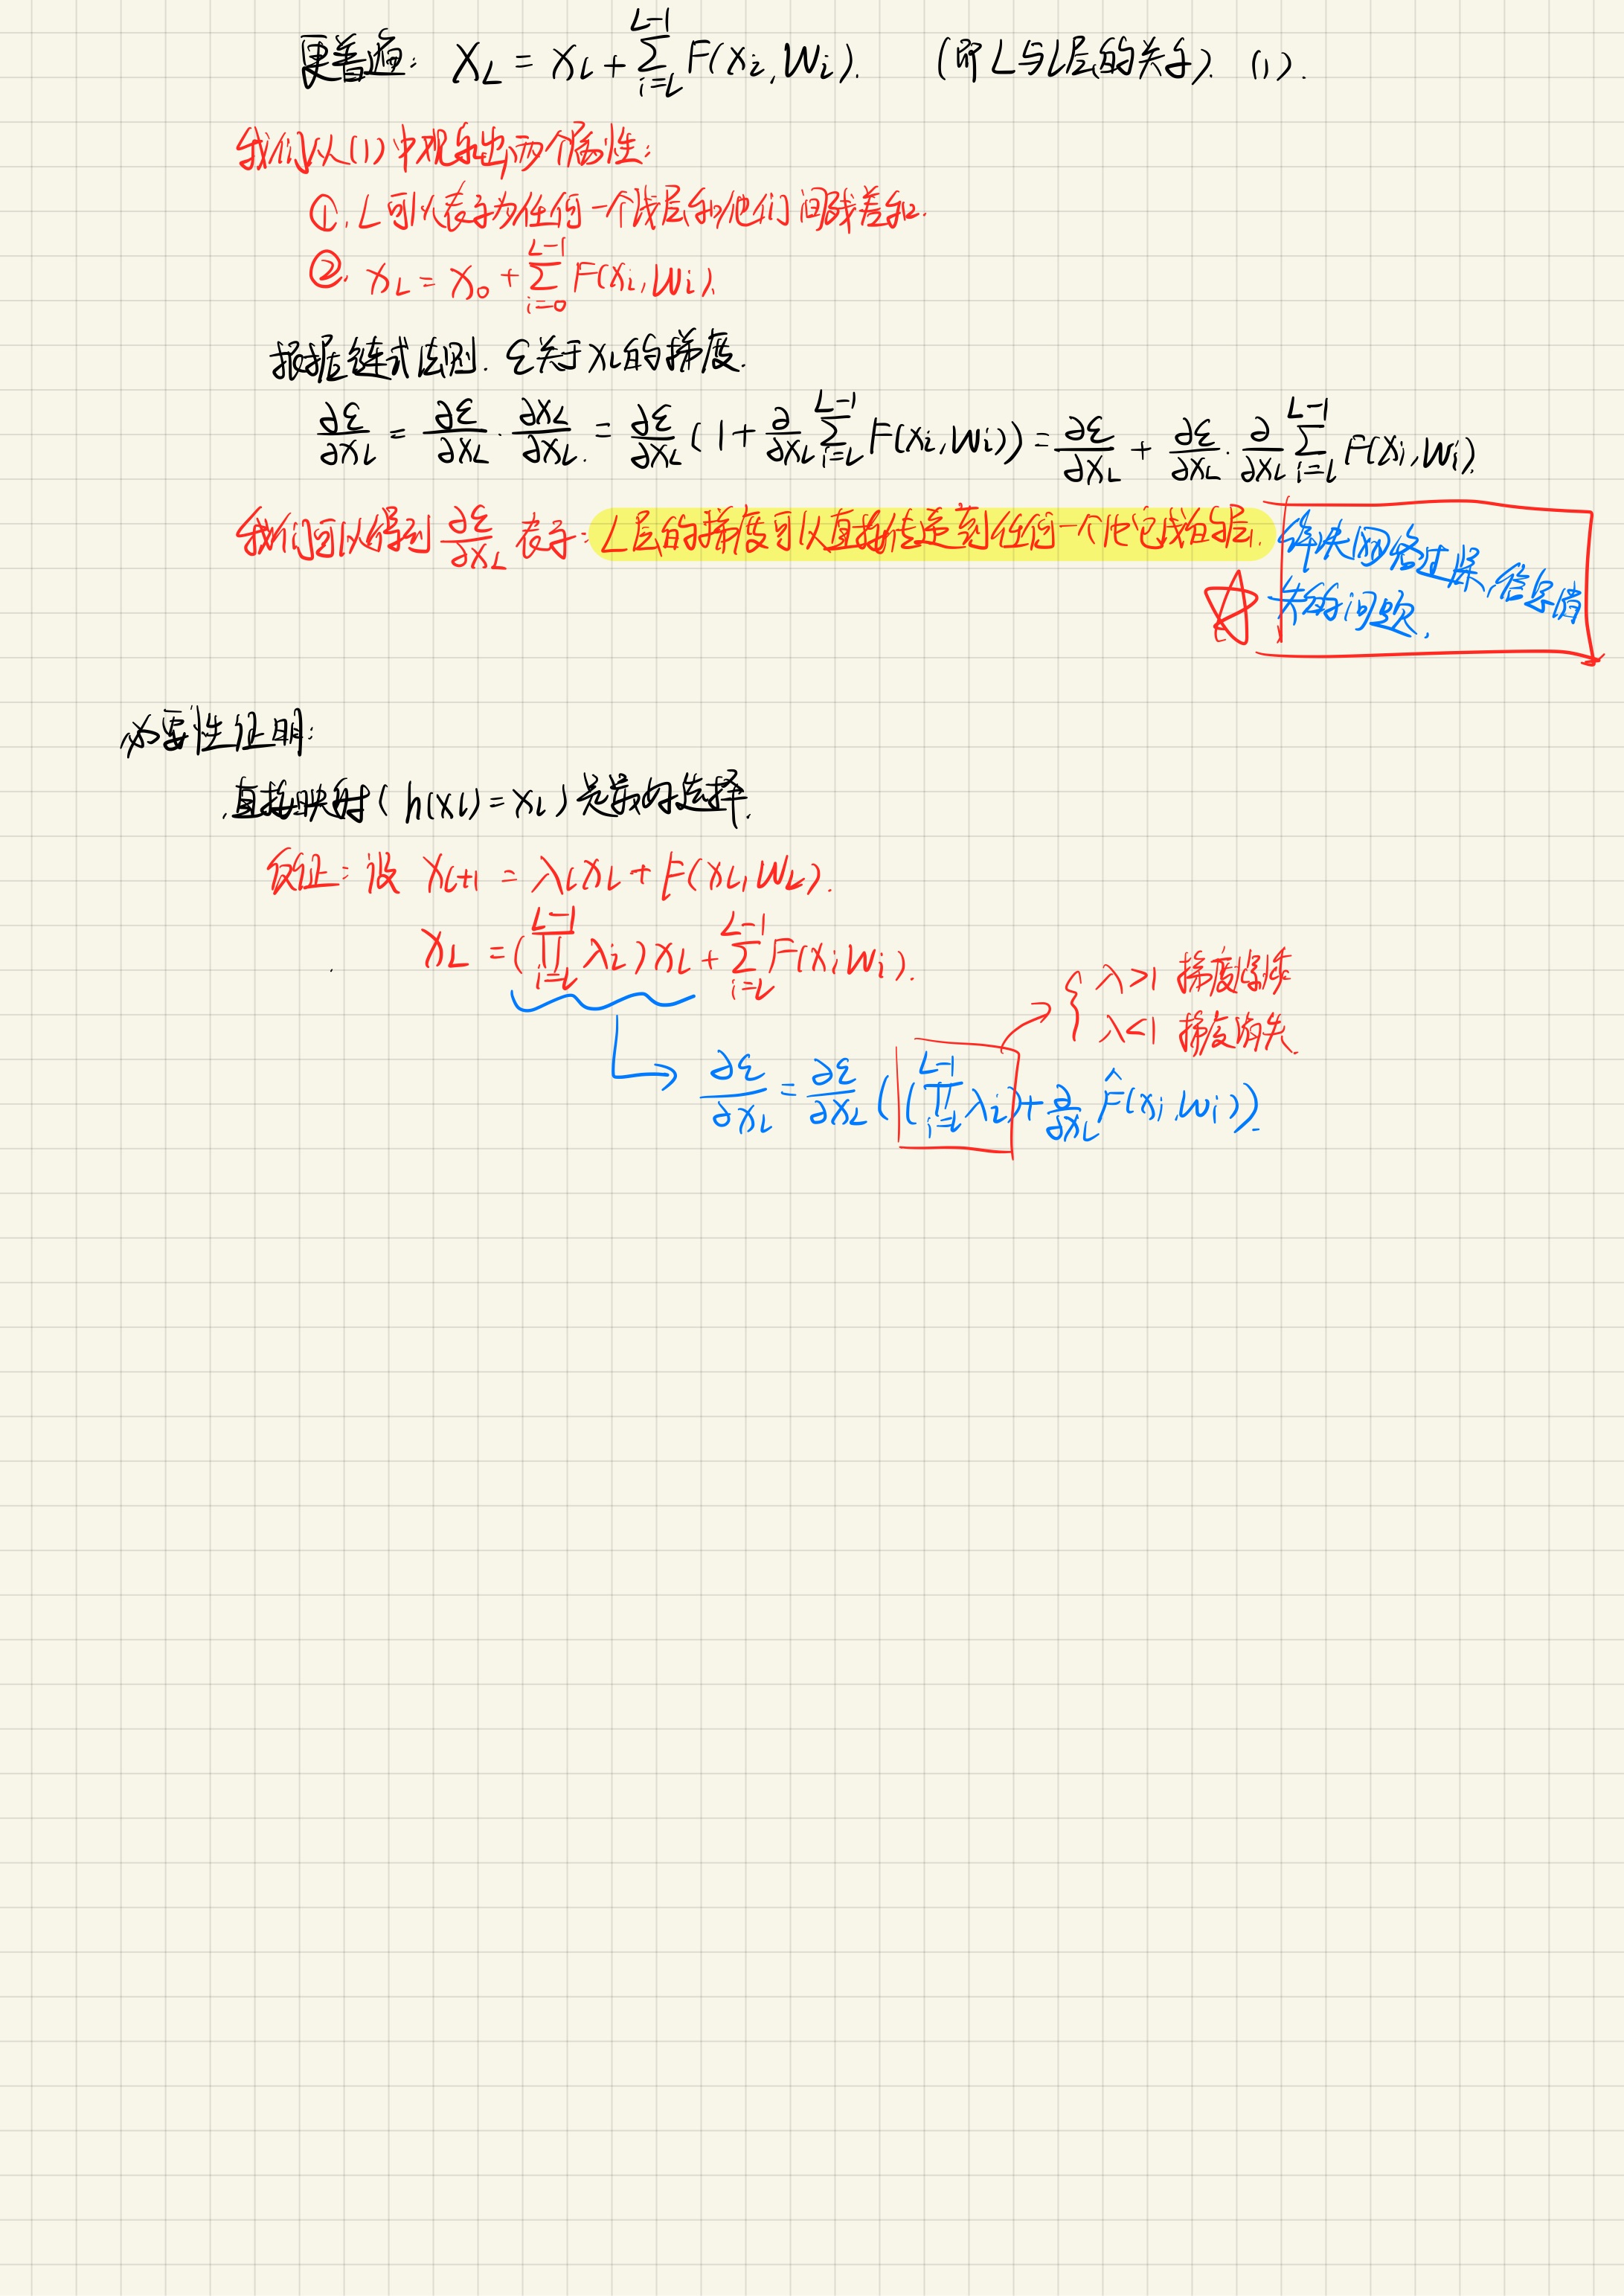 更普遍: X_L = x_l + \sum_{i=l}^{L-1} F(x_i, W_i). (即L与l层的关系). (1).
我们从(1)中观察出两个属性:
①. L可以表示为任何一个浅层和他们间残差和.
②. x_L = x_0 + \sum_{i=0}^{L-1} F(x_i, W_i).
根据链式法则. ε关于x_l的梯度.
\frac{∂ε}{∂x_l} = \frac{∂ε}{∂x_L} · \frac{∂x_L}{∂x_l} = \frac{∂ε}{∂x_L} (1 + \frac{∂}{∂x_l} \sum_{i=l}^{L-1} F(x_i, W_i)) = \frac{∂ε}{∂x_L} + \frac{∂ε}{∂x_L} · \frac{∂}{∂x_l} \sum_{i=l}^{L-1} F(x_i, W_i).
我们可以得到 \frac{∂ε}{∂x_L} 表示: L层的梯度可以直接传递到任何一个比它浅的层.
解决网络过深,信号消
失的问题.
必要性证明:
直接映射(h(x_l) = x_l)是最好选择.
反证: 设 x_{l+1} = λ_l x_l + F(x_l, W_l).
x_L = (\prod_{i=l}^{L-1} λ_i) x_l + \sum_{i=l}^{L-1} F(x_i W_i).
λ>1 梯度爆炸
λ<1 梯度消失.
\frac{∂ε}{∂x_l} = \frac{∂ε}{∂x_L} ((\prod_{i=l}^{L-1} λ_i) + \frac{∂}{∂x_l} \hat{F}(x_i, w_i)).